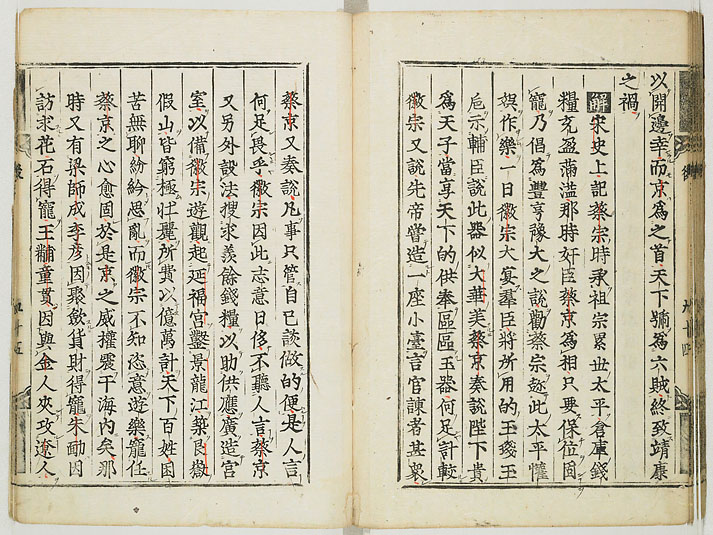 以開邊幸而京爲之首天下號爲六賊終致靖康
之禍
解宋史上記蔡宗時承祖宗累世太平倉庫錢
糧充盈滿溢那時奸臣蔡京爲相只要保位固
寵乃倡爲豐亨豫大之說勸蔡宗趂此太平懽
娛作樂一日徽宗大宴羣臣將所用的玉琖玉
巵示輔臣說此器似大華美蔡京奏說陛下貴
爲天子當享天下的供奉區區玉器何足計較
徽宗又說先帝甞造一座小臺言官諫者甚衆
蔡京又奏說凡事只管自己該做的便是人言
何足畏乎徽宗因此志意日侈不聽人言蔡京
又另外設法搜求羨餘錢糧以助供應廣造宮
室以備徽宗遊觀起延福宮鑿景龍江築艮嶽
假山皆窮極壮麗所費以億萬計天下百姓困
苦無聊紛紛思亂而徽宗不知恣意遊樂寵任
蔡京之心愈固於是京之威權震于海內矣那
時又有梁師成李彦因聚斂貨財得寵朱勔因
訪求花石得寵王黼童貫因與金人夾攻遼人